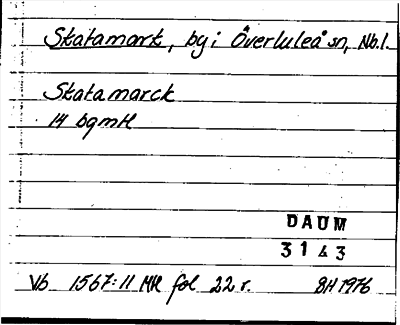 Skatamark, by i Överluleå sn, Nb.l.
Skatamarck
14 bqmH
DAUM
3143
Vb 1567:11 MH fol 22 r. BH 1976